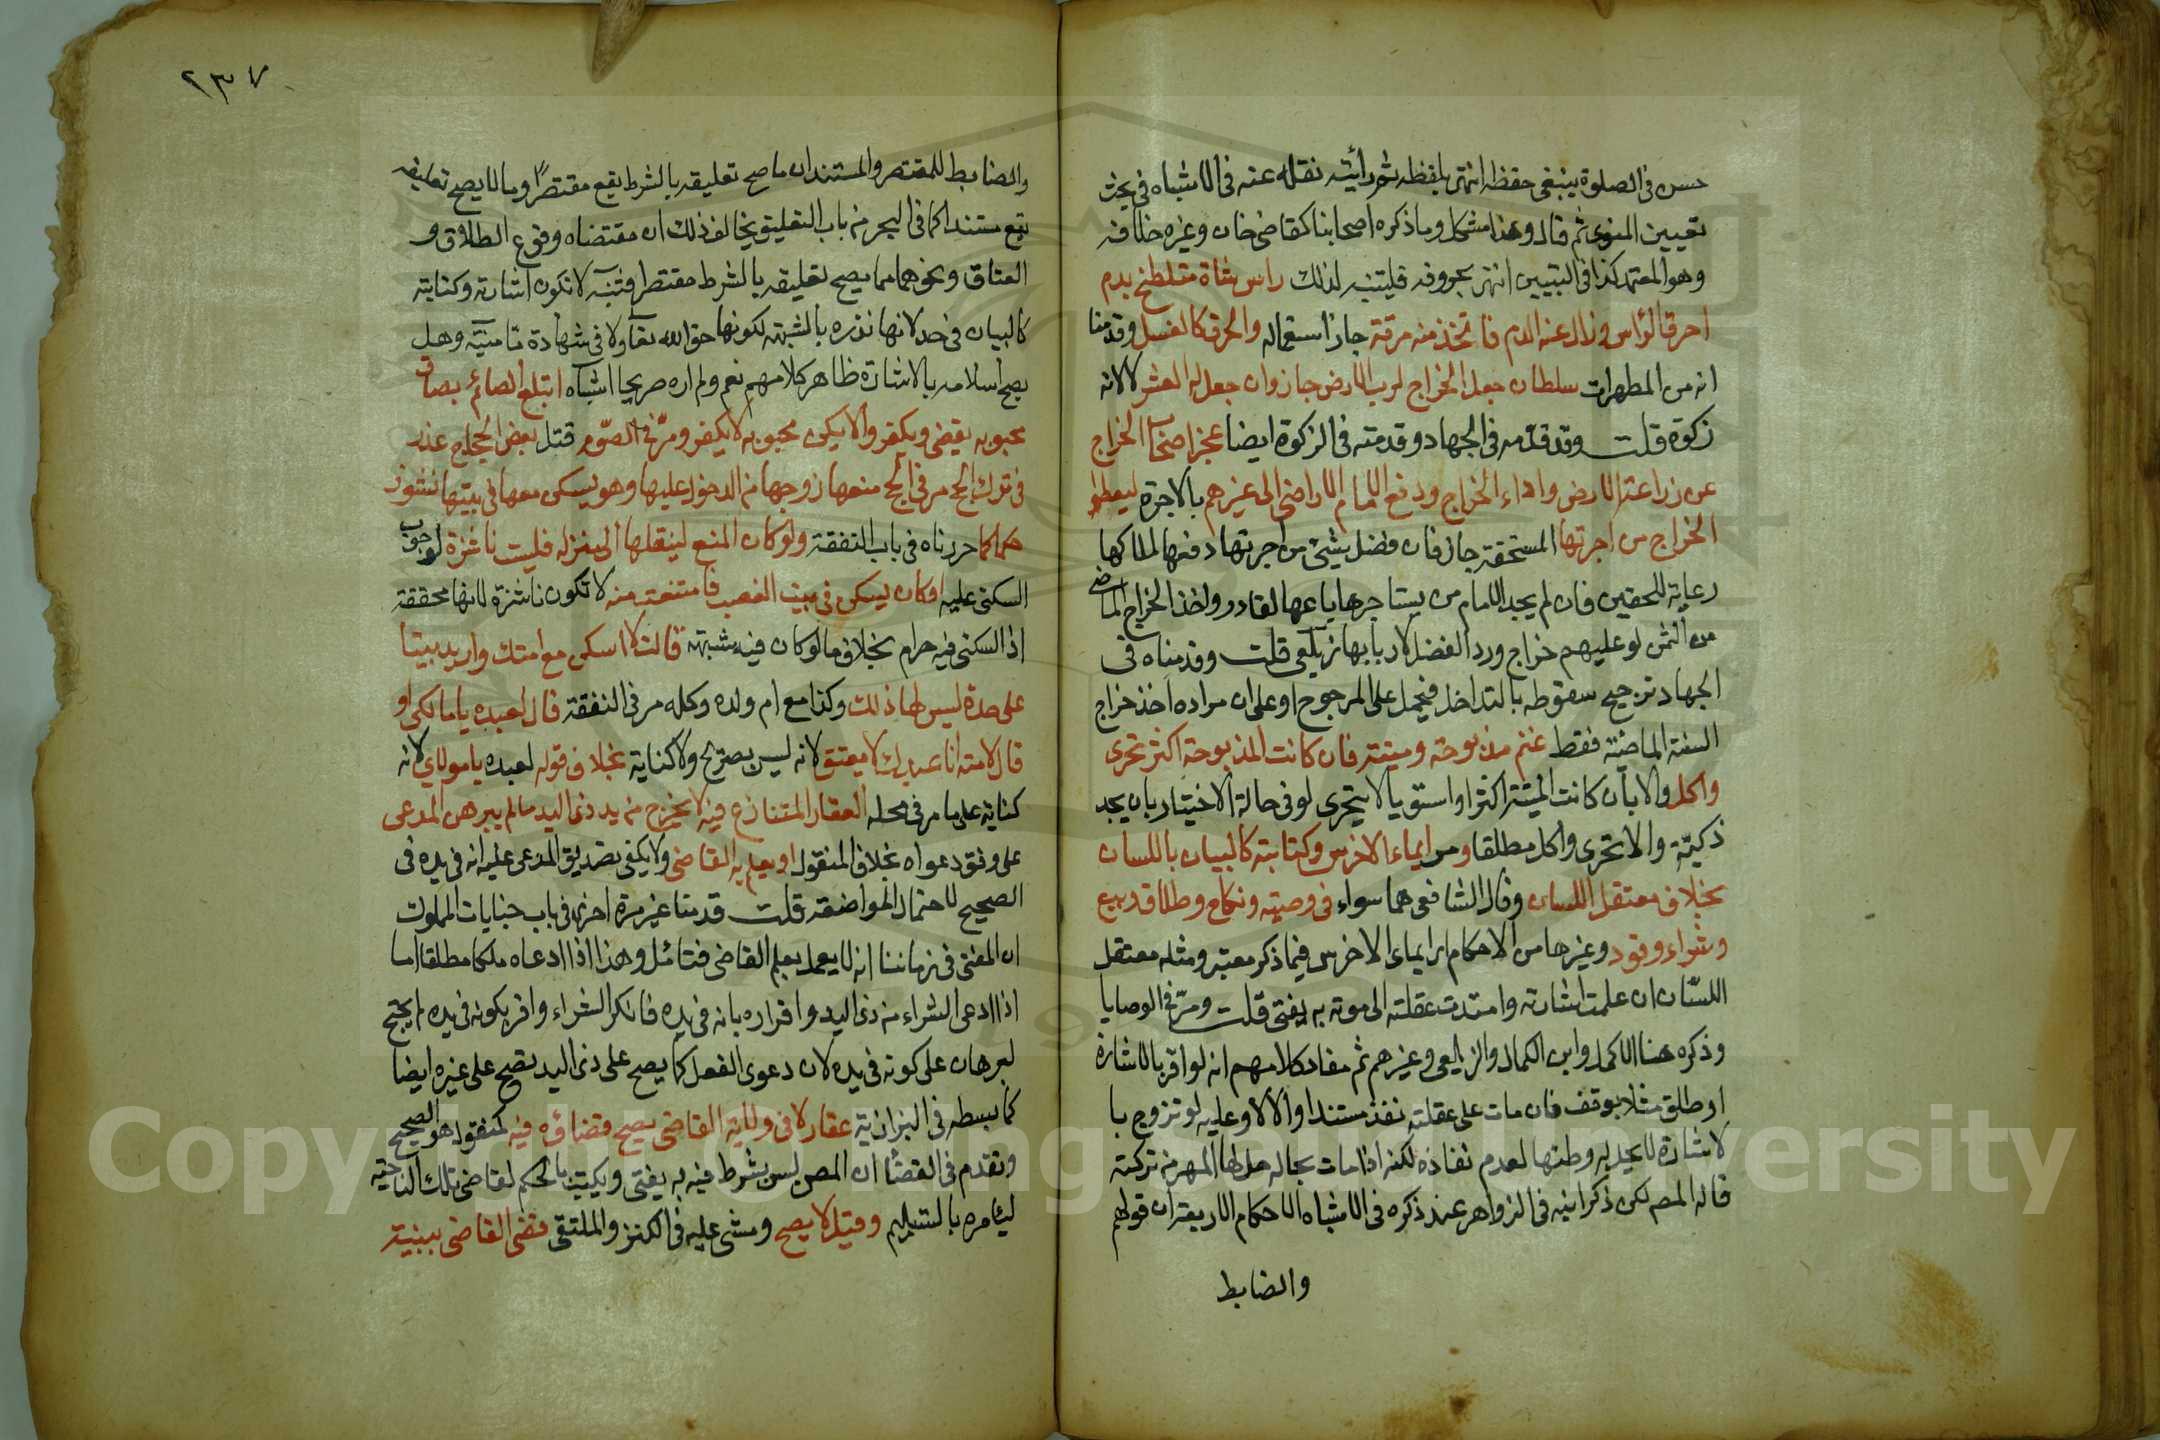 حسن فى الصلوة ينبغى حفظه انتهى بلفظه ثم رأيته نقله عنه فى الاشباه فى بحث
تعيين المنوى ثم قال وهذا مشكل وما ذكره اصحابنا كقاضى خان وغيره خلافه
وهو المعتمد كذا فى التبيين انتهى بحروفه فليتنبه لذلك راس شاة متلطخ بدم
احرق الرأس وزال عنه الدم فاتخذ منه مرقة جاز استعماله والحرق كالغسل وقدمنا
انه من المطهرات سلطان جعل الخراج لرب الارض جاز وان جعل له العشر لا لانه
زكوة قلت وقد قدمه فى الجهاد وقدمته فى الزكوة ايضا عجز اصحاب الخراج
عن زراعة الارض واداء الخراج ودفع الامام الاراضى الى غيرهم بالاجرة ليعطوا
الخراج من اجرتها المستحقة جاز فان فضل شئ من اجرتها دفعها لمالكها
رعاية للحقين فان لم يجد الامام من يستاجرها باعها لقادر واخذ الخراج الماضى
من الثمن لو عليهم خراج ورد الفضل لاربابها زيلعى قلت وقدمناه فى
الجهاد ترجيح سقوطه بالتداخل فيحمل على المرجوح او على ان مراده اخذ خراج
السنة الماضية فقط غنم مذبوحة وميتة فان كانت المذبوحة اكثر تحرى
واكل والا بان كانت الميتة اكثر او استويا لا يتحرى لو فى حالة الاختيار بان يجد
ذكية والا تحرى واكل مطلقا ومر ايماء الاخرس وكتابته كالبيان باللسان
بخلاف معتقل اللسان وقال الشافعى هما سواء فى وصية ونكاح وطلاق وبيع
وشراء وقود وغيرها من الاحكام اى ايماء الاخرس فيما ذكر معتبر ومثله معتقل
اللسان ان علمت اشارته وامتدت عقلته الى موته به يفتى قلت ومر فى الوصايا
وذكره هنا الاكمل وابن الكمال والزيلعى وغيرهم ثم مفاد كلامهم انه لو اقر بالاشارة
او طلق مثلا يوقف فان مات على عقلته نفذ مستندا والا لا وعليه لو تزوج با
لاشارة لا يحل له وطئها لعدم نفاذه لكنه اذا مات بحاله حل لها المهر من تركته
قاله المصن لكن ذكر ابنه فى الزواهر عند ذكره فى الاشباه الاحكام الاربعة ان قولهم
والضابط
٢٣٧
والضابط للمقتصر والمستند ان ما صح تعليقه بالشرط يقع مقتصرًا وما لا يصح تعليقه
يقع مستندا كما فى البحر من باب التعليق يخالف ذلك ان مقتضاه وقوع الطلاق و
العتاق ونحوهما مما يصح تعليقه بالشرط مقتصرا فتنبه لا تكون اشارته وكتابته
كالبيان فى حد لانها تدرء بالشبهة لكونها حق الله تعالى ولا فى شهادة ما منية وهل
يصح اسلامه بالاشارة ظاهر كلامهم نعم ولم اره صريحا اشباه ابتلع الصائم بصاق
محبوبه يقضى ويكفر والا يكن محبوبه لا يكفر ومر فى الصوم قتل بعض الحجاج عذر
فى ترك الحج مر فى الحج منعها زوجها من الدخول عليها وهو يسكن معها فى بيتها نشوز
حكما كما حررناه فى باب النفقة ولو كان المنع لينقلها الى منزله فليست ناشزة لوجوب
السكنى عليه او كان يسكن فى بيت الغصب فامتنعت منه لا تكون ناشزة لانها محقة
اذ السكنى فيه حرام بخلاف ما لو كان فيه شبهة قالت لا اسكن مع امتك واريد بيتا
على حدة ليس لها ذلك وكذا مع ام ولده وكله مر فى النفقة قال لعبده يا مالكى او
قال لامته انا عبدك لا يعتق لانه ليس بصريح ولا كناية بخلاف قوله لعبده يا مولاي لانه
كناية على ما مر فى محله العقار المتنازع فيه لا يخرج من يد ذى اليد ما لم يبرهن المدعى
على وفق دعواه بخلاف المنقول او يعلم به القاضى ولا يكفى تصديق المدعى عليه انه فى يده فى
الصحيح لاحتمال المواضعة قلت قدمنا غير مرة اخرها فى باب جنايات المملوك
ان المفتى فى زماننا انه لا يعمل بعلم القاضى فتامل وهذا اذا ادعاه ملكا مطلقا اما
اذا ادعى الشراء من ذى اليد واقراره بانه فى يده فانكر الشراء واقر بكونه فى يده لم يحتج
لبرهان على كونه فى يده لان دعوى الفعل كما يصح على ذى اليد يصح على غيره ايضا
كما بسطه فى البزازية عقار لا فى ولاية القاضى يصح قضاؤه فيه كمنقول هو الصحيح
وتقدم فى القضاء ان المصر ليس بشرط فيه به يفتى ويكتب بالحكم لقاضى تلك الناحية
ليأمره بالتسليم وقيل لا يصح ومشى عليه فى الكنز والملتقى قضى القاضى ببينة
Copyright © King Saud University